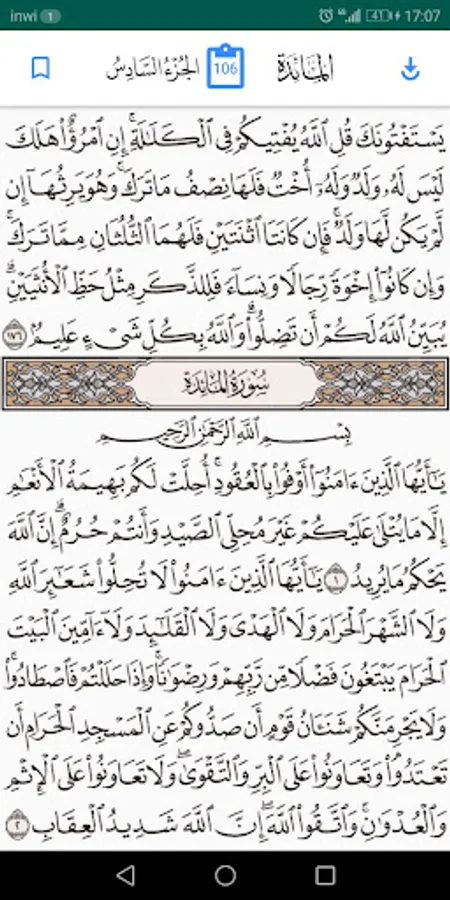 inwi 1 4G 41 17:07
المائدة 106 الجزء السادس
يَسْتَفْتُونَكَ قُلِ ٱللَّهُ يُفْتِيكُمْ فِي ٱلْكَلَٰلَةِۚ إِنِ ٱمْرُؤٌاْ هَلَكَ
لَيْسَ لَهُۥ وَلَدٌ وَلَهُۥٓ أُخْتٌ فَلَهَا نِصْفُ مَا تَرَكَۚ وَهُوَ يَرِثُهَآ إِن
لَّمْ يَكُن لَّهَا وَلَدٌۚ فَإِن كَانَتَا ٱثْنَتَيْنِ فَلَهُمَا ٱلثُّلُثَانِ مِمَّا تَرَكَۚ
وَإِن كَانُوٓاْ إِخْوَةً رِّجَالًا وَنِسَآءً فَلِلذَّكَرِ مِثْلُ حَظِّ ٱلْأُنثَيَيْنِۗ
يُبَيِّنُ ٱللَّهُ لَكُمْ أَن تَضِلُّواْۗ وَٱللَّهُ بِكُلِّ شَىْءٍ عَلِيمٌۢ ١٧٦
سُورَةُ المَائِدَةِ
بِسْمِ ٱللَّهِ ٱلرَّحْمَٰنِ ٱلرَّحِيمِ
يَٰٓأَيُّهَا ٱلَّذِينَ ءَامَنُوٓاْ أَوْفُواْ بِٱلْعُقُودِۚ أُحِلَّتْ لَكُم بَهِيمَةُ ٱلْأَنْعَٰمِ
إِلَّا مَا يُتْلَىٰ عَلَيْكُمْ غَيْرَ مُحِلِّي ٱلصَّيْدِ وَأَنتُمْ حُرُمٌۗ إِنَّ ٱللَّهَ
يَحْكُمُ مَا يُرِيدُ ١ يَٰٓأَيُّهَا ٱلَّذِينَ ءَامَنُواْ لَا تُحِلُّواْ شَعَٰٓئِرَ ٱللَّهِ
وَلَا ٱلشَّهْرَ ٱلْحَرَامَ وَلَا ٱلْهَدْىَ وَلَا ٱلْقَلَٰٓئِدَ وَلَآ ءَآمِّينَ ٱلْبَيْتَ
ٱلْحَرَامَ يَبْتَغُونَ فَضْلًا مِّن رَّبِّهِمْ وَرِضْوَٰنًاۚ وَإِذَا حَلَلْتُمْ فَٱصْطَادُواْۚ
وَلَا يَجْرِمَنَّكُمْ شَنَـَٔانُ قَوْمٍ أَن صَدُّوكُمْ عَنِ ٱلْمَسْجِدِ ٱلْحَرَامِ أَن
تَعْتَدُواْۘ وَتَعَاوَنُواْ عَلَى ٱلْبِرِّ وَٱلتَّقْوَىٰۖ وَلَا تَعَاوَنُواْ عَلَى ٱلْإِثْمِ
وَٱلْعُدْوَٰنِۚ وَٱتَّقُواْ ٱللَّهَۖ إِنَّ ٱللَّهَ شَدِيدُ ٱلْعِقَابِ ٢